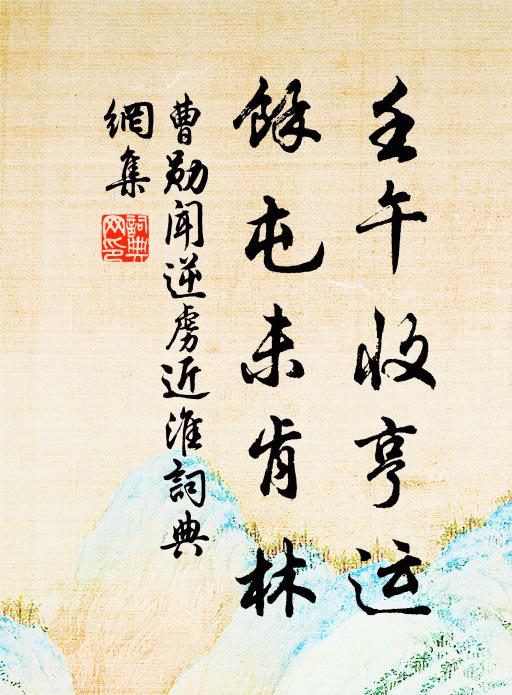 壬午收亨运
馀屯未肯林
曹勋闻逆虏近淮詞典
網集
詞典網印